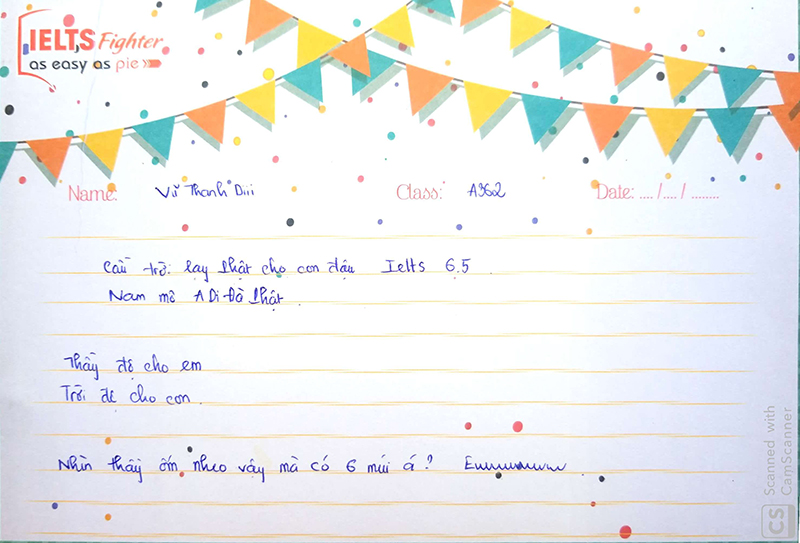 IELTS Fighter
as easy as pie
Name: Vũ Thanh Class: A3602 Date: ..../..../........
Cầu trời lạy phật cho con đậu Ielts 6.5
Nam mô A Di Đà Phật.
Thầy độ cho em
Trời độ cho con.
Nhìn thầy ốm nheo vậy mà có 6 múi á?
CS Scanned with
CamScanner